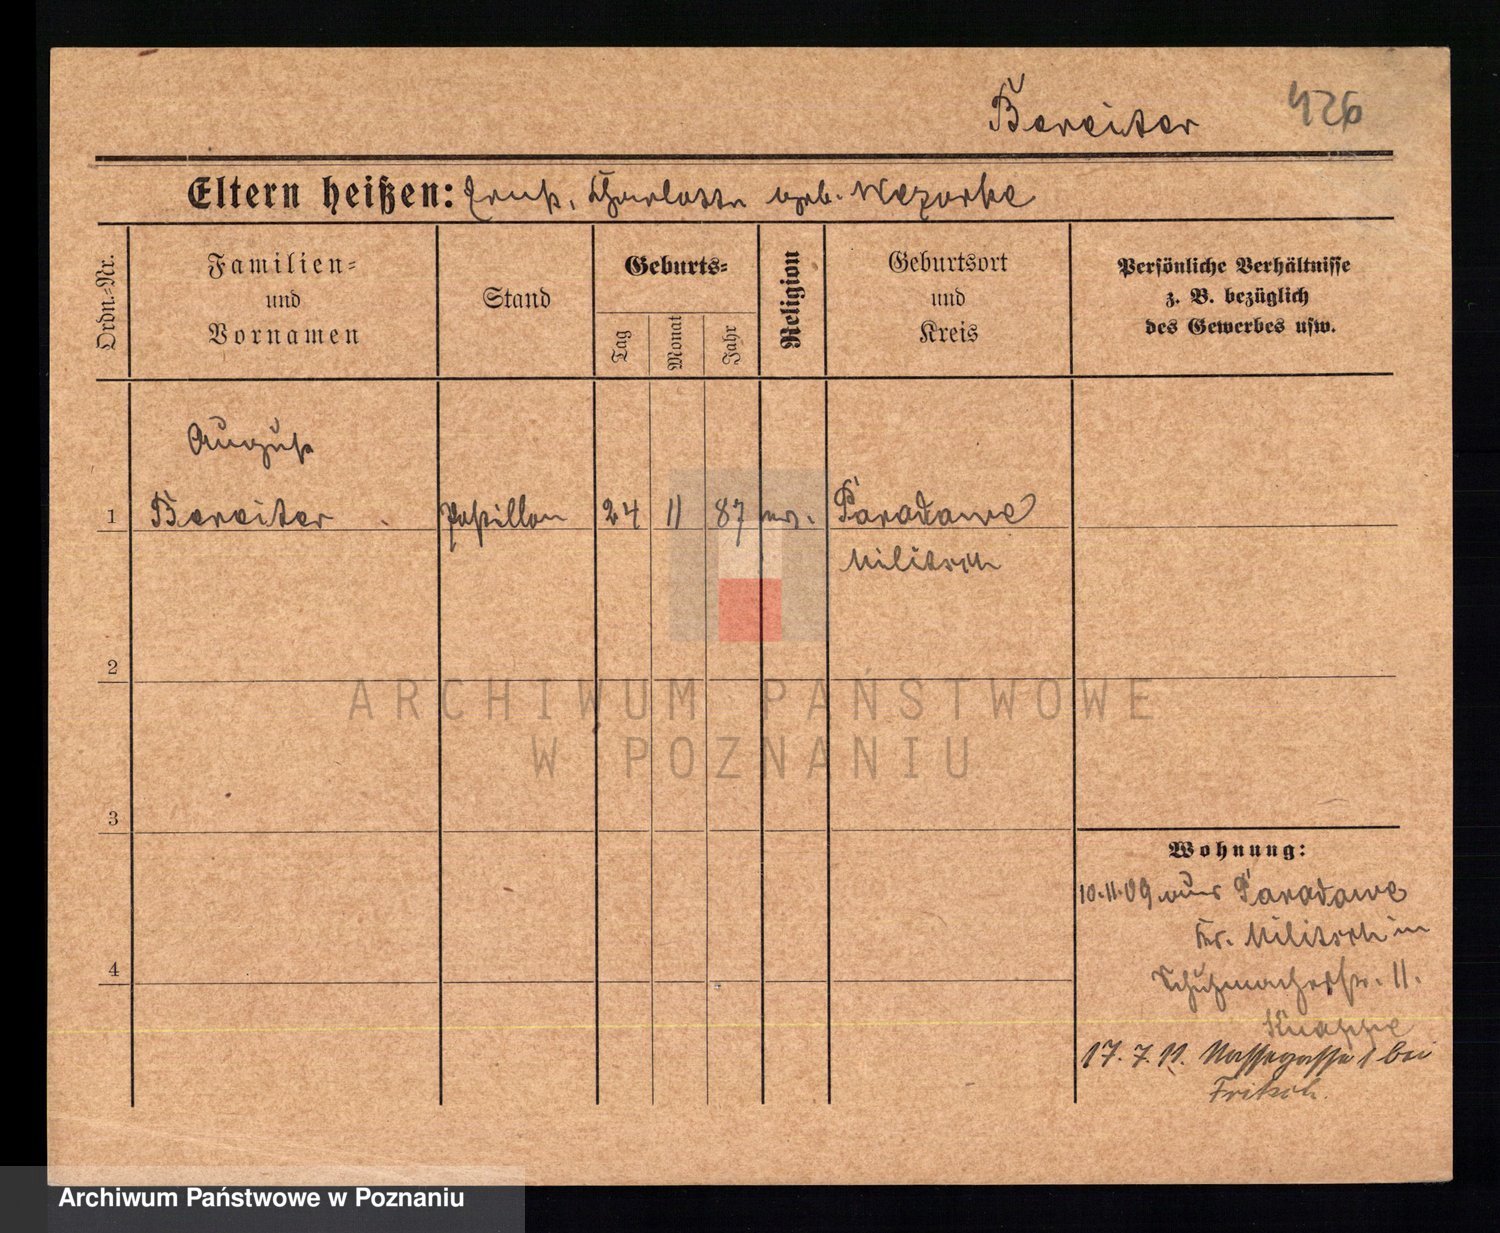 Bereiter 426
Eltern heißen: Ernst, Charlotte geb. Wezorke
Ordn.-Nr.
Familien-
und
Vornamen
Stand
Geburts-
Tag
Monat
Jahr
Religion
Geburtsort
und
Kreis
Persönliche Verhältnisse
z. B. bezüglich
des Gewerbes usw.
August
1 Bereiter 24 11 87 ev. Paradawe
Militsch
2
ARCHIWUM PAŃSTWOWE
W POZNANIU
3
Wohnung:
10.11.09 aus Paradawe
Kr. Militsch in
Schuhmacherstr. 11.
Knappe
4
17. 7. 11. Nassegasse 1 bei
Fritsch.
Archiwum Państwowe w Poznaniu